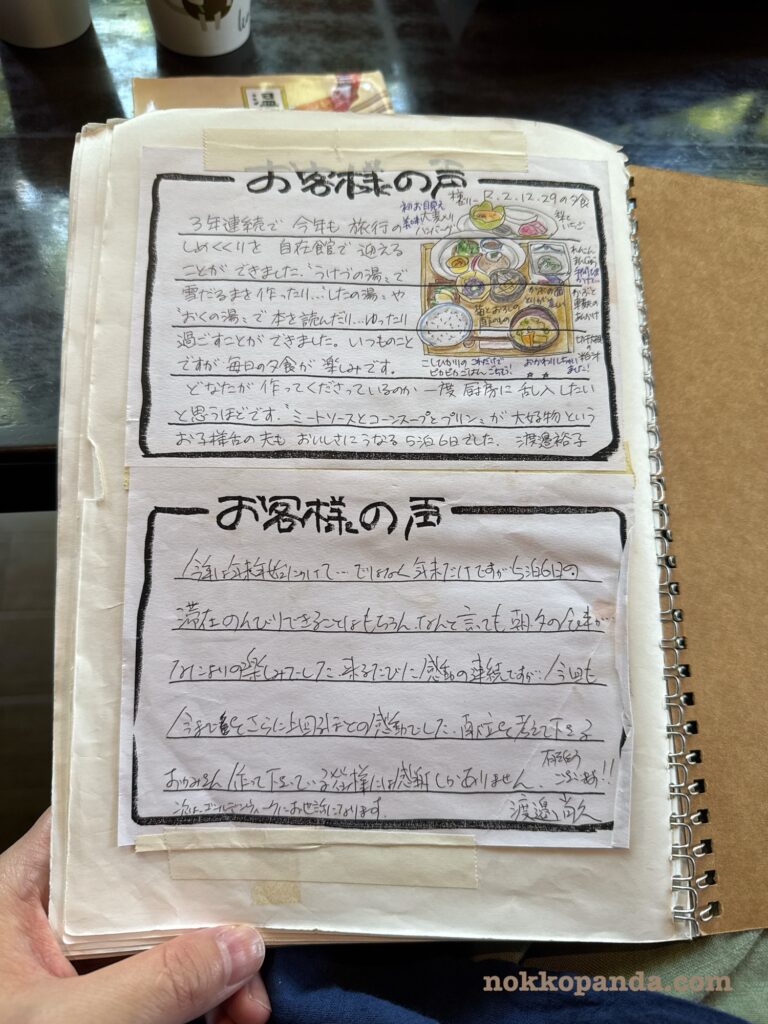 温
お客様の声
3年連続で 今年も 旅行の
しめくくりを 自在館で 迎える
ことが できました。"うけづの湯"で
雪だるまを作ったり…"したの湯"や
"おくの湯"で 本を読んだり…ゆったり
過ごすことが できました。いつものこと
ですが 毎日の夕食が 楽しみです。
どなたが 作ってくださっているのか 一度 厨房に 乱入したい
と思うほどです。"ミートソースとコーンスープとプリン"が 大好物という
お子様舌の夫も おいしさにうなる 5泊6日でした。 渡邊裕子
R.2.12.29の夕食
大麦入り
ハンバーグ
こしひかりの
ピカピカごはん
お客様の声
今年は年末年始にかけて…ではなく 年末だけですが 5泊6日の
滞在 のんびりできることはもちろん、なんと言っても 朝夕の食事が
なによりの楽しみでした。来るたびに 感動の連続ですが、今回も
さらに上回るほどの感動でした。献立を考えて下さる
おかみさん 作って下さっている皆様には感謝しかありません。
有難う
ございます!!
次は、ゴールデンウィークにお世話になります。
渡邊尚久
nokkopanda.com